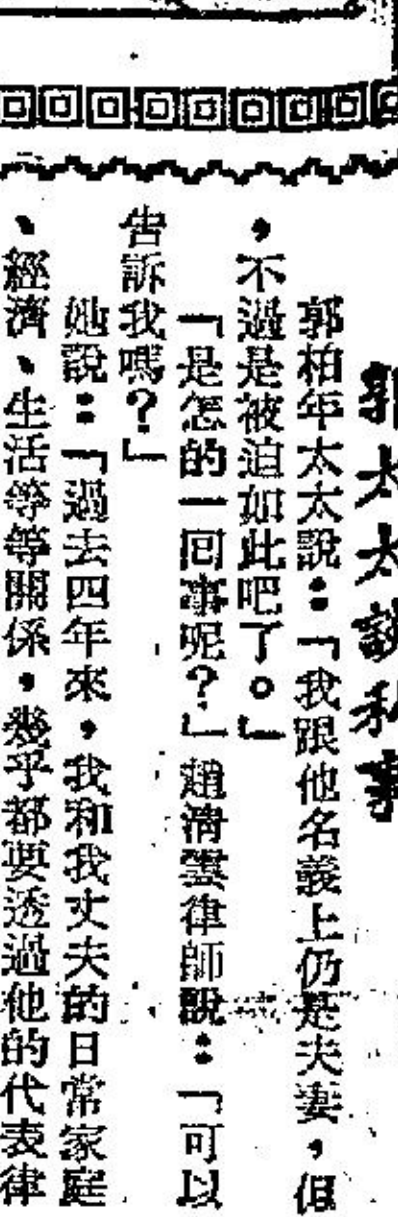 郭太太談私事
郭柏年太太說：「我跟他名義上仍是夫妻，但
，不過是被迫如此吧了。」
「是怎的一回事呢？」趙清雲律師說：「可以
告訴我嗎？」
她說：「過去四年來，我和我丈夫的日常家庭
、經濟、生活等等關係，幾乎都要透過他的代表律